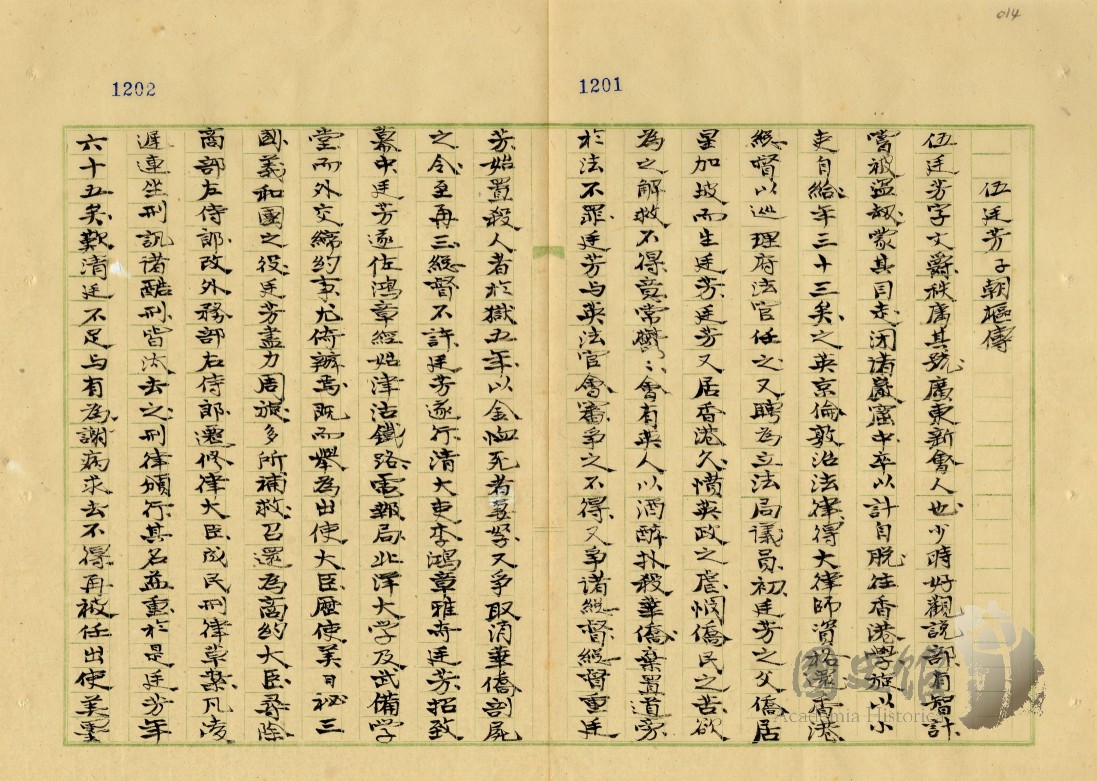 014
1201
1202
伍廷芳子朝樞傳
伍廷芳字文爵秩庸其號廣東新會人也少時好觀說部有智計
嘗被盜劫蒙其目走閉諸巖窟中卒以計自脫往香港學旋以小
吏自給年三十三矣之英京倫敦治法律得大律師資格還香港
總督以巡理府法官任之又聘為立法局議員初廷芳之父僑居
星加坡而生廷芳廷芳又居香港久憤英政之虐憫僑民之苦欲
為之解救不得竟常鬱鬱會有英人以酒醉扑殺華僑棄置道旁
於法不罪廷芳与英法官會審爭之不得又爭諸總督總督重廷
芳始置殺人者於獄五年以金恤死者孥又爭取消華僑剖屍
之令至再三總督不許廷芳遂行清大吏李鴻章雅奇廷芳招致
幕中廷芳遂佐鴻章經始津沽鐵路電報局北洋大學及武備學
堂而外交締約事尤倚辦焉既而舉為出使大臣歷使美日祕三
國義和團之役廷芳盡力周旋多所補救召還為商約大臣尋除
商部左侍郎改外務部右侍郎遷修律大臣成民刑律草案凡凌
遲連坐刑訊諸酷刑皆汰去之刑律頒行其名益重於是廷芳年
六十五矣歎清廷不足与有為謝病求去不得再被任出使美墨
國史館
Academia Historica